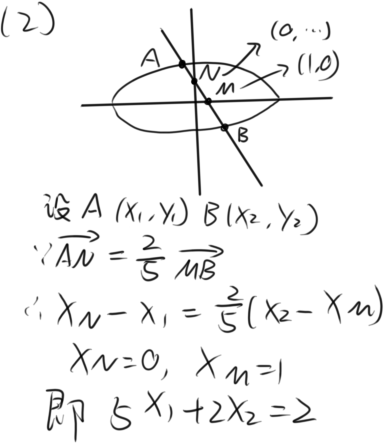 (2)
(0, ...)
A
N
M
(1,0)
B
设 A (x₁, y₁) B(x₂, y₂)
∵ $\overrightarrow{AN} = \frac{2}{5} \overrightarrow{MB}$
∴ $x_N - x_1 = \frac{2}{5}(x_2 - x_M)$
$x_N = 0, x_M = 1$
即 5x₁+2x₂=2